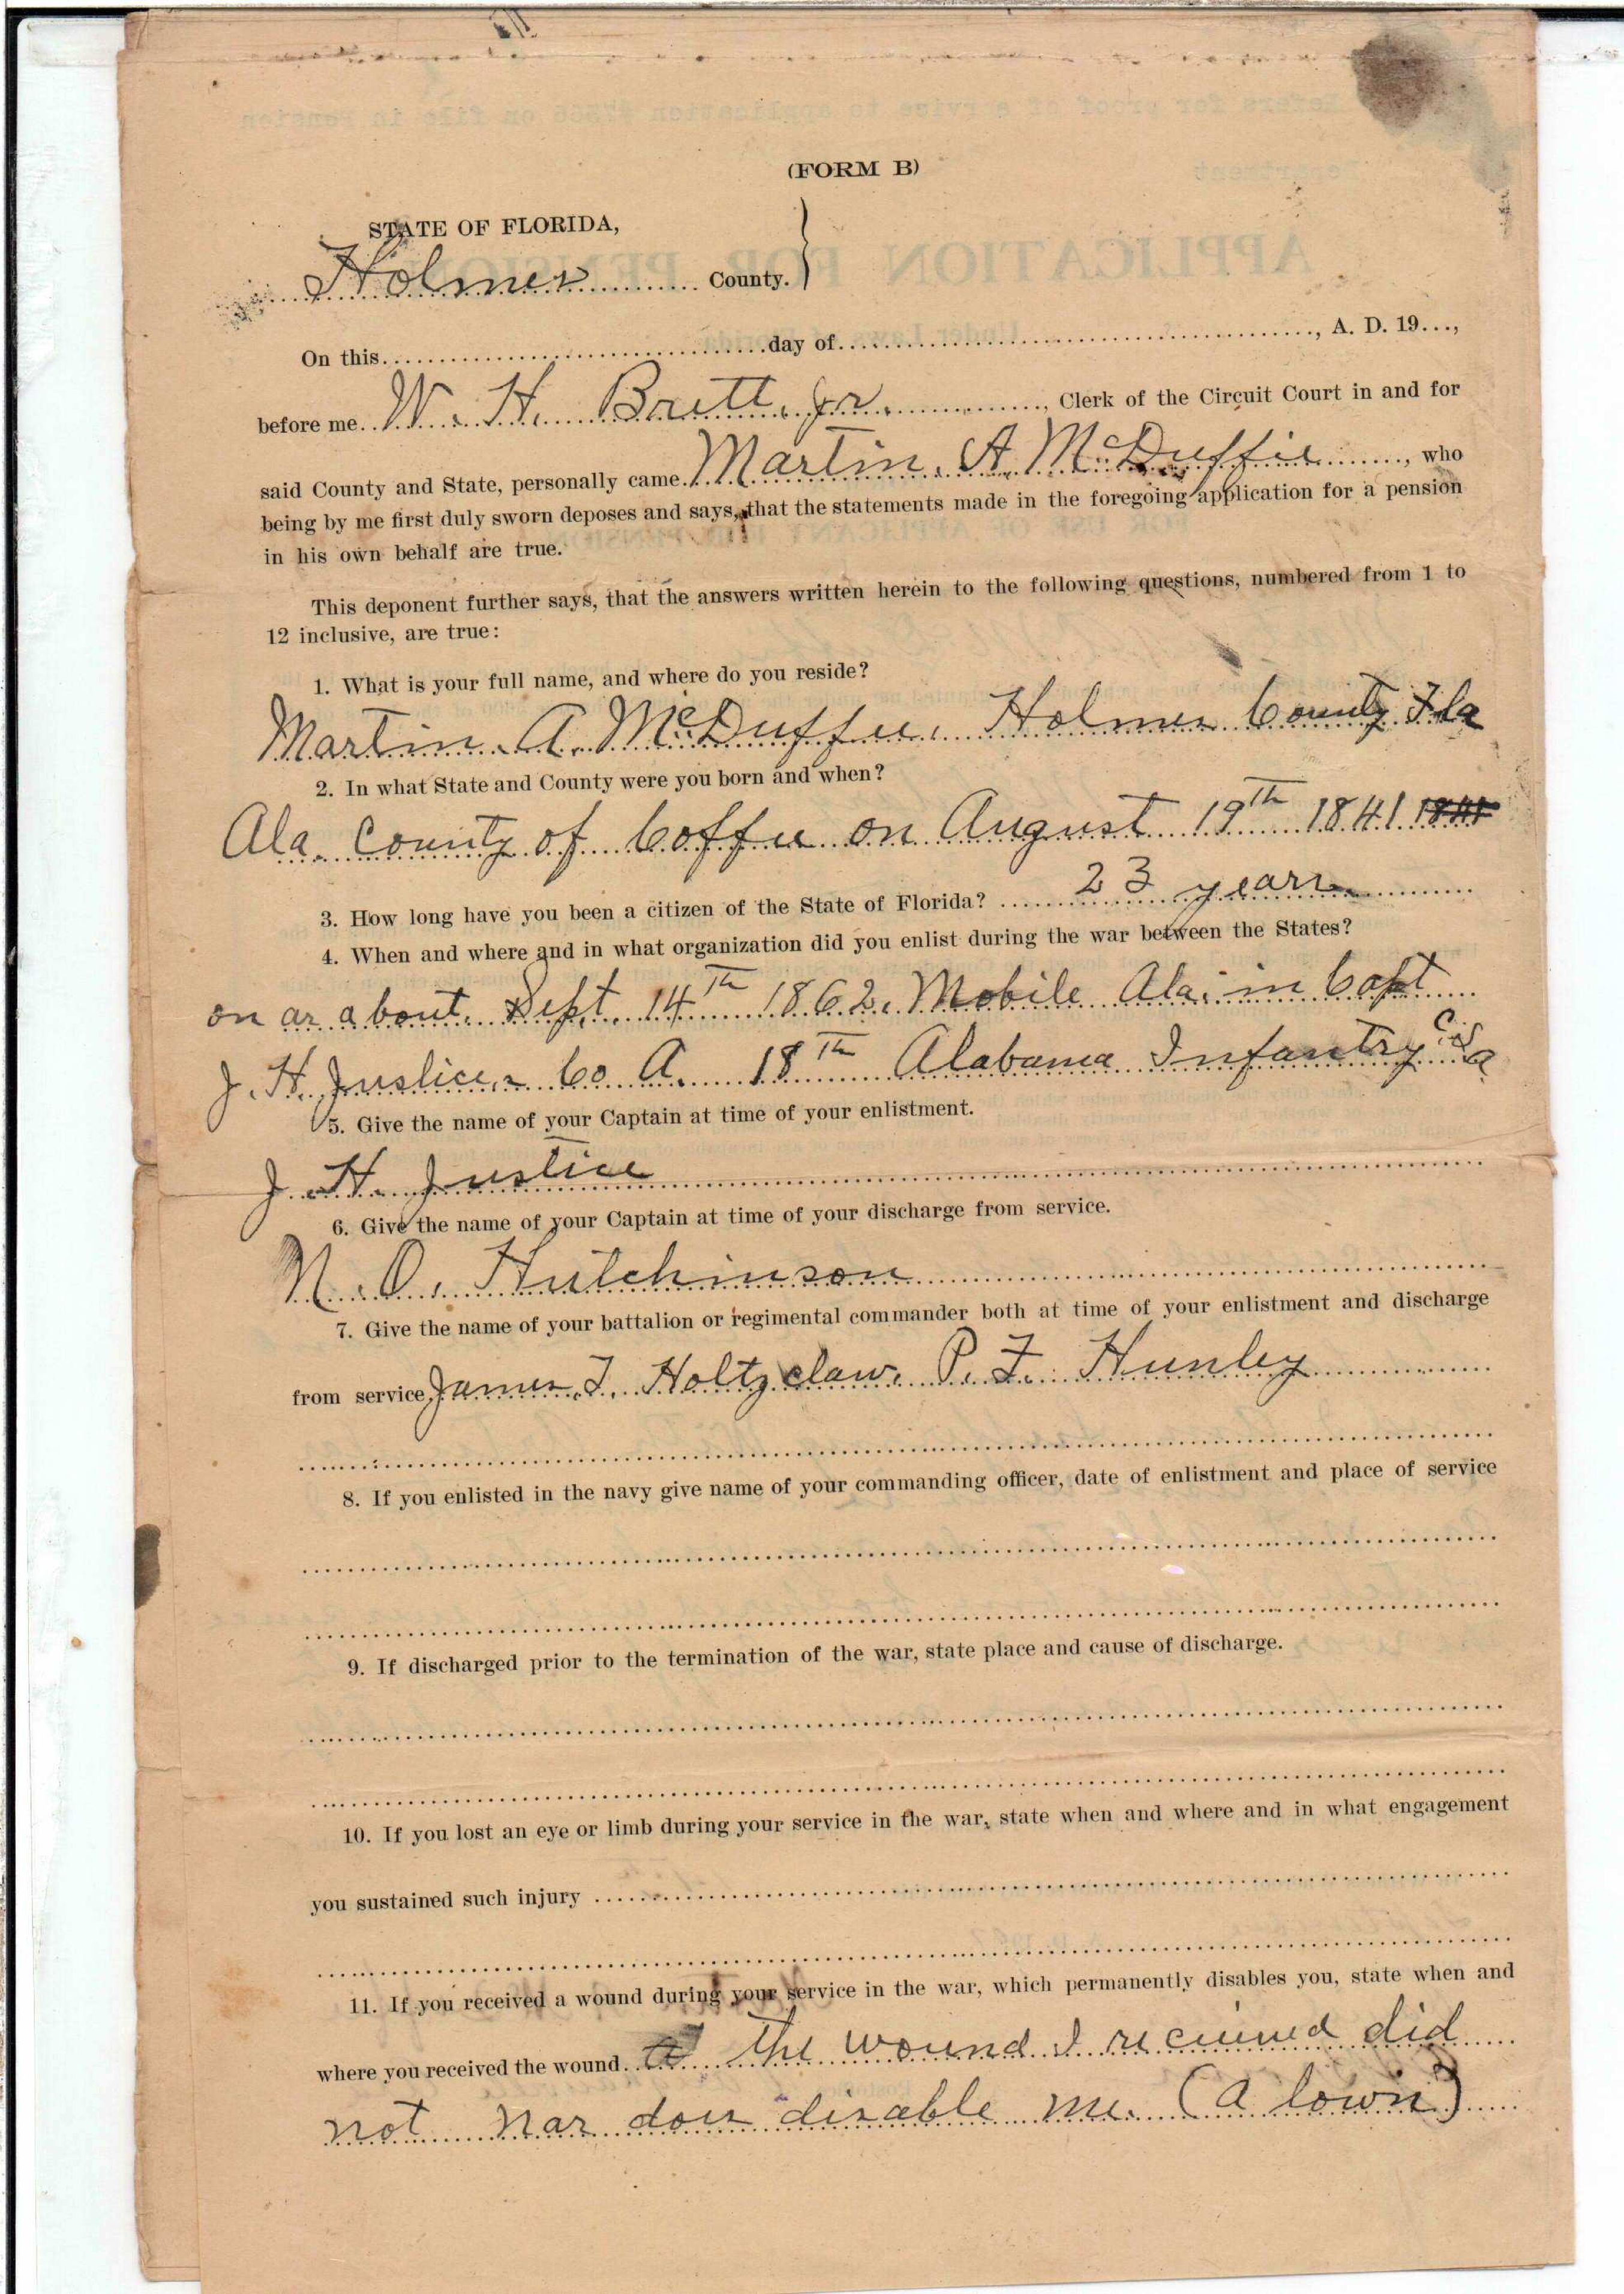 (FORM B)
STATE OF FLORIDA,
Holmes County.
On this day of , A. D. 19...,
before me W. H. Brett. Jr. , Clerk of the Circuit Court in and for
said County and State, personally came Martin. A. McDuffie , who
being by me first duly sworn deposes and says, that the statements made in the foregoing application for a pension
in his own behalf are true.
This deponent further says, that the answers written herein to the following questions, numbered from 1 to
12 inclusive, are true:
1. What is your full name, and where do you reside?
Martin A. McDuffie. Holmes County Fla
2. In what State and County were you born and when?
Ala. County of Coffee on August 19th 1841 1841
3. How long have you been a citizen of the State of Florida? 23 years
4. When and where and in what organization did you enlist during the war between the States?
on ar about. Sept. 14th 1862. Mobile Ala. in Capt
J. H. Justices Co A. 18th Alabama Infantry C.S.a
5. Give the name of your Captain at time of your enlistment.
J. H. Justice
6. Give the name of your Captain at time of your discharge from service.
N. O. Hutchinson
7. Give the name of your battalion or regimental commander both at time of your enlistment and discharge
from service James. T. Holtzclaw. P. F. Hunley
8. If you enlisted in the navy give name of your commanding officer, date of enlistment and place of service
9. If discharged prior to the termination of the war, state place and cause of discharge.
10. If you lost an eye or limb during your service in the war, state when and where and in what engagement
you sustained such injury
11. If you received a wound during your service in the war, which permanently disables you, state when and
where you received the wound. the wound I recieved did
not nar does disable me. (a